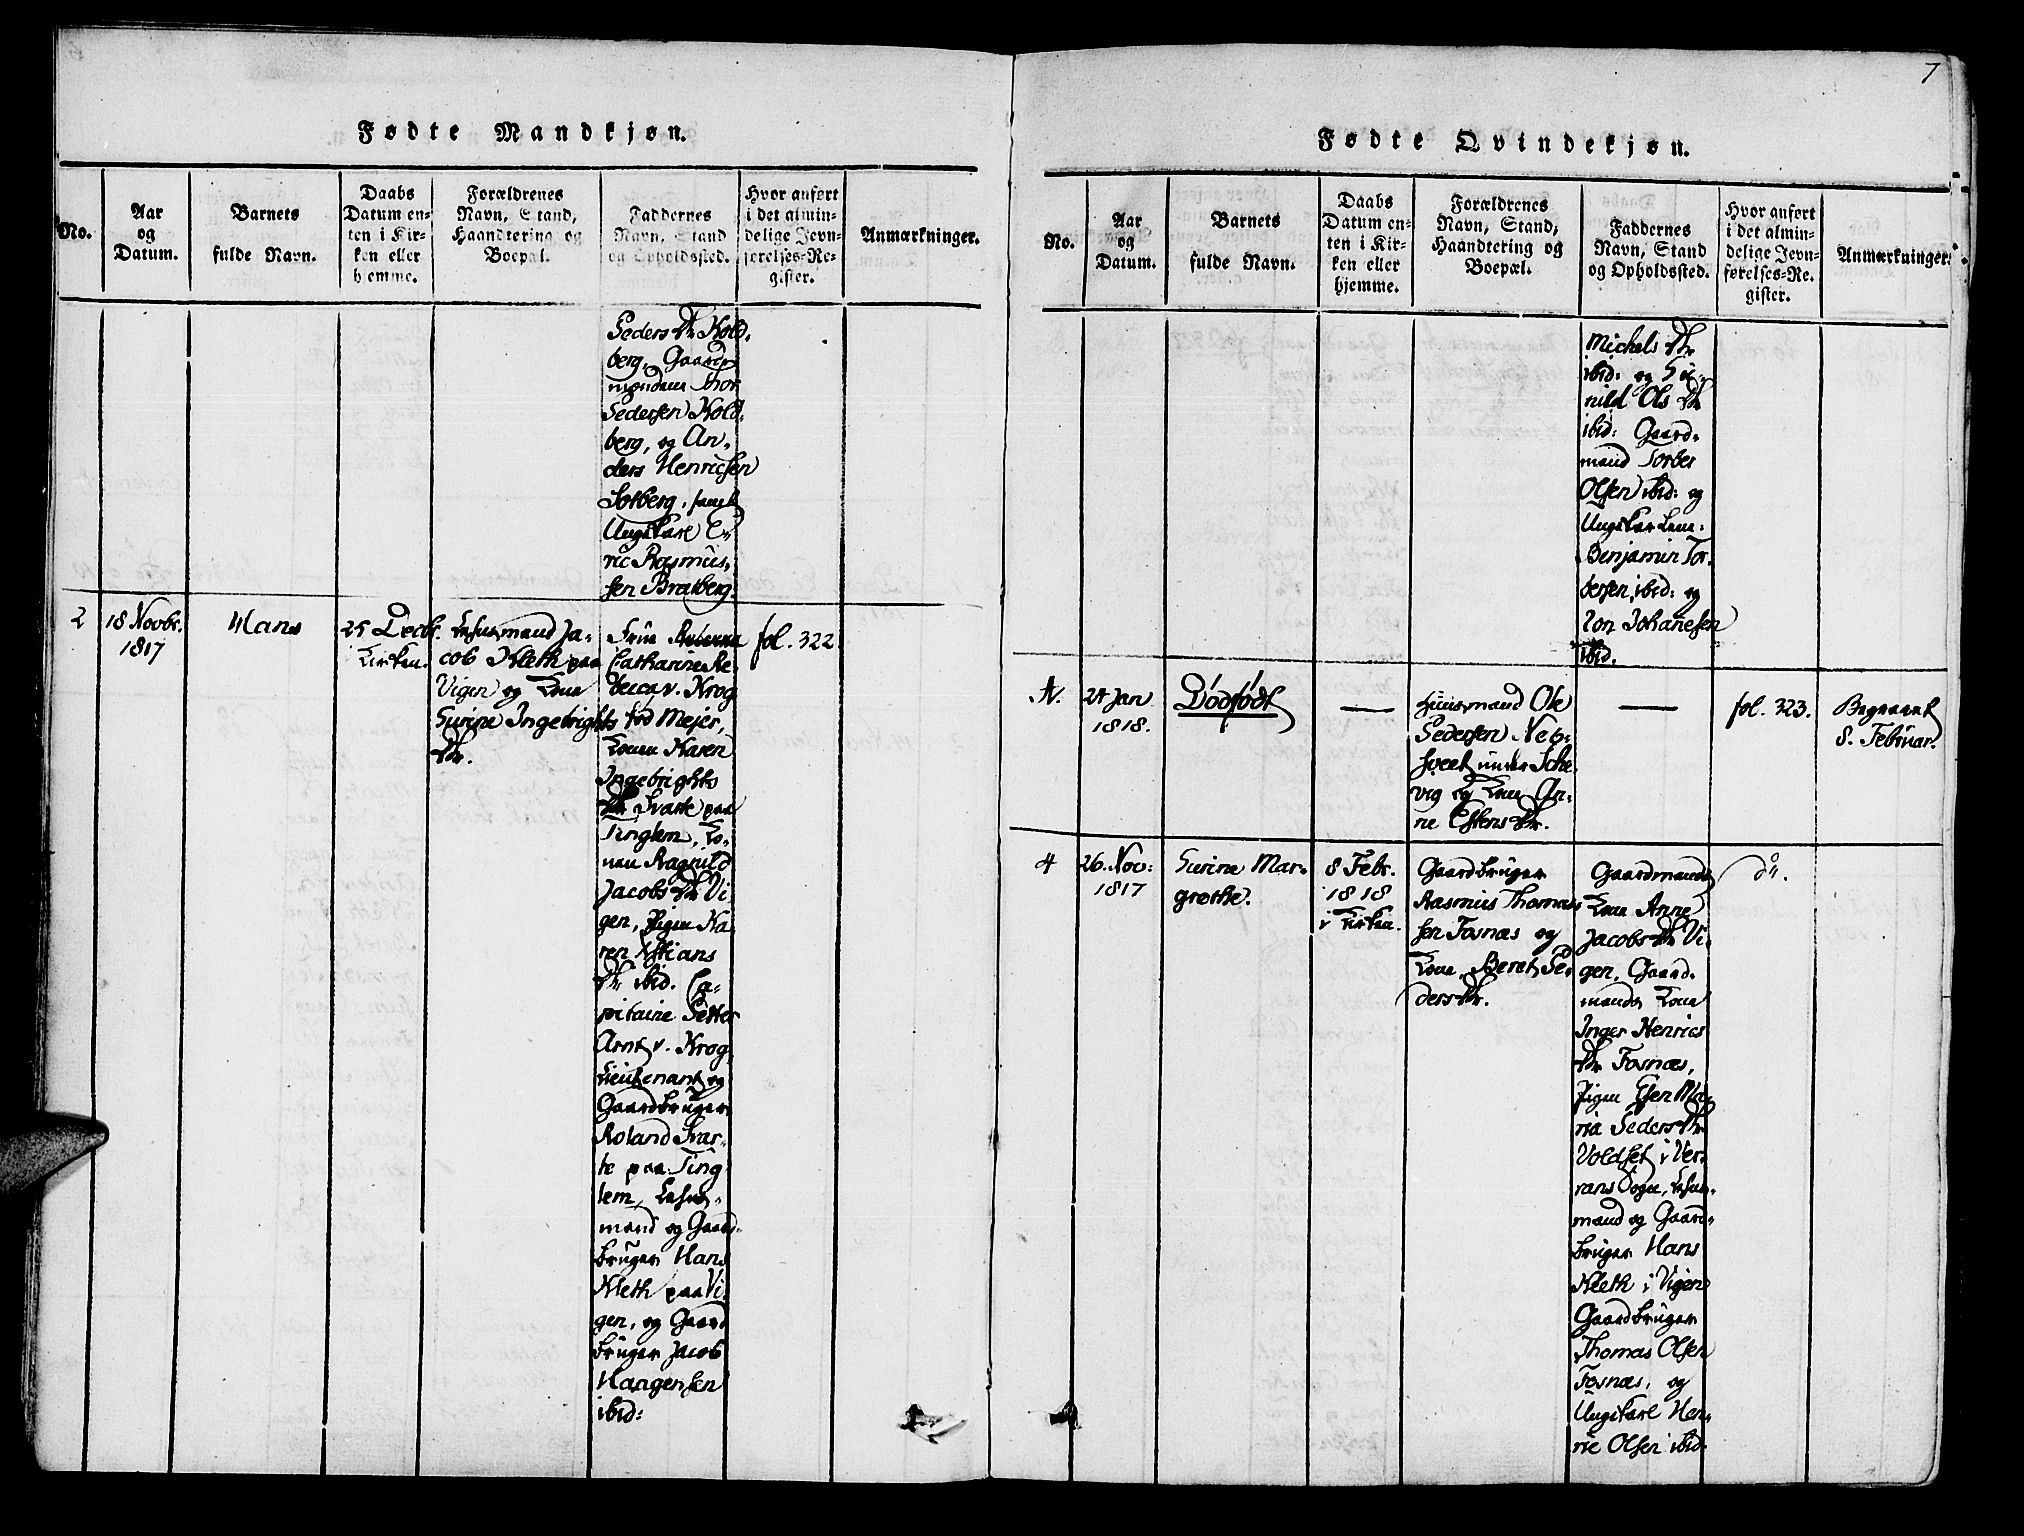 Fødte Mandkjøn.
No.
Aar
og
Datum.
Barnets
fulde Navn.
Daabs
Datum en-
ten i Kir-
ken eller
hjemme.
Forældrenes
Navn, Stand,
Haandtering og
Boepæl.
Faddernes
Navn, Stand
og Opholdssted.
Hvor anført
i det almin-
delige Jevn-
førelses-Re-
gister.
Anmærkninger.
Peders Dtr Hold-
berg, Gaard-
mændene
Pedersen Hold-
berg, og An-
ders Henricsen
Solberg, samt
Ungkarl E-
ric Rasmus-
sen Bratberg.
2
18 Novbr.
1817
Hans
25 Decbr.
Kirken.
Lehnsmand Ja-
cob Kleth paa
Vigen og Kone
Surine Ingebrights
Dtr.
Frue
Catharine Re-
becca v. Krog
fød Mejer,
Konen Karen
Ingebrights
Dtr Svarte paa
Tinglem, Ko-
nen Ragnild
Jacobs Dtr Vi-
gen, Pigen Ka-
ren Kstians
Dtr ibid. Ca-
pitaine Petter
Arnt v. Krog,
Lieutenant og
Gaardbruger
Roland Svar-
te paa Ting-
lem, Lehns-
mand og Gaard-
bruger Hans
Kleth paa Vi-
gen, og Gaard
bruger Jacob
Hangensen
ibid:
fol. 322.
7
Fødte Qvindekjøn.
No.
Aar
og
Datum.
Barnets
fulde Navn.
Daabs
Datum en-
ten i Kir-
ken eller
hjemme.
Forældrenes
Navn, Stand,
Haandtering og
Boepæl.
Faddernes
Navn, Stand
og Opholdssted.
Hvor anført
i det almin-
delige Jevn-
førelses-Re-
gister.
Anmærkninger.
Michels Dtr
ibid: og Gu-
nild Ols Dtr
ibid: Gaard-
mand Torber
Olsen ibid: og
Ungkarlene:
Benjamin Tor-
bersen, ibid: og
Jon Johanesen
ibid.
N.
24 Jan
1818.
Dødfødt
—
Huusmand Ole
Pedersen Neb-
sveet under Sche-
vig og Kone An-
ne Estens Dtr.
—
fol. 323.
Begravet
8. Februar.
4
26. Nov:
1817
Surine Mar-
grethe.
8 Febr.
1818
i Kirken.
Gaardbruger
Rasmus Thomas-
sen Fosnæs og
Kone, Beret Pe-
ders Dtr.
Gaardmands
Kone Anne
Jacobs Dtr Vi-
gen, Gaard-
mands Kone
Inger Henrics
Dtr Fosnæs,
Pigen Elen Ma-
ria Peders Dtr
Voldset i Ver-
rans Sogn, Lehns-
mand og Gaard-
bruger Hans
Kleth i Vigen
Gaardbruger
Thomas Olsen
Fosnæs, og
Ungkarl Hen-
ric Olsen ibid.
do.